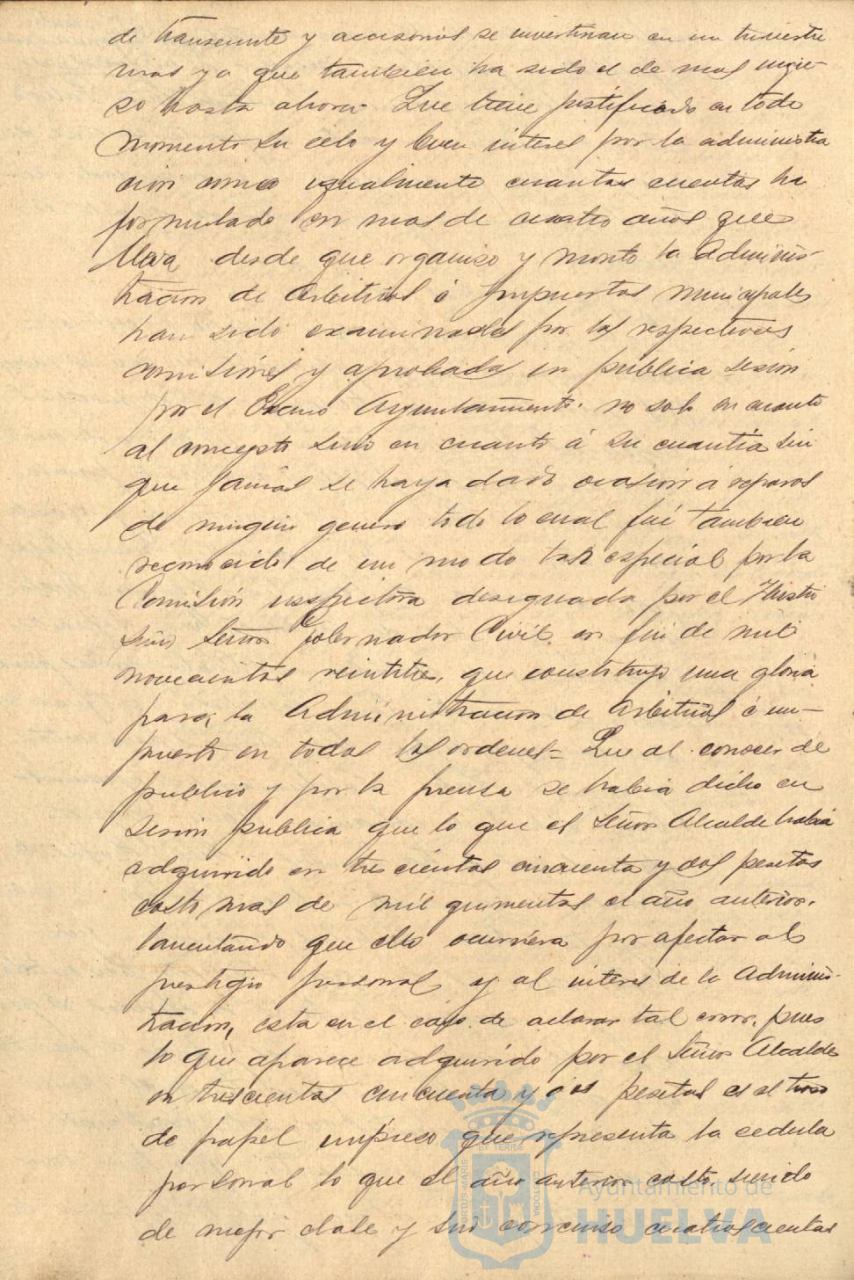 de transeunte y accesorios se invertirian en un trimestre
mas ya que tambien ha sido el de mas ingre-
so hasta ahora. Que tiene justificado en todo
momento su celo y buen interes por la administra
cion como igualmente cuantas cuentas ha
formulado en mas de cuatro años que
lleva desde que organizo y monto la Adminis-
tracion de Arbitrios é Impuestos municipales
han sido examinadas por las respectivas
comisiones y aprobadas en publica sesion
por el Excmo Ayuntamiento no solo en cuanto
al concepto sino en cuanto á su cuantia sin
que jamas se haya dado ocasion á reparos
de ningun genero todo lo cual fué tambien
reconocido de un modo tan especial por la
Comisión inspectora designada por el Ilustri
simo Señor Gobernador Civil en fin de mil
novecientos veintitres, que constituyo una gloria
para la Administracion de Arbitrios é im-
puestos en todos los ordenes= Que al conocer de
publico y por la prensa se habia dicho en
sesion publica que lo que el Señor Alcalde habia
adquirido en trescientas cincuenta y dos pesetas
costo mas de mil quinientas el año anterior,
lamentando que ello ocurriera por afectar al
prestigio personal y al interes de la Adminis-
tracion, esta en el caso de aclarar tal error, pues
lo que aparece adquirido por el Señor Alcalde
en trescientas cincuenta y dos pesetas es el
de papel impreso que representa la cedula
personal lo que el año anterior costo siendo
de mejor clase y sin concurso cuatrocientas
Ayuntamiento de
HUELVA